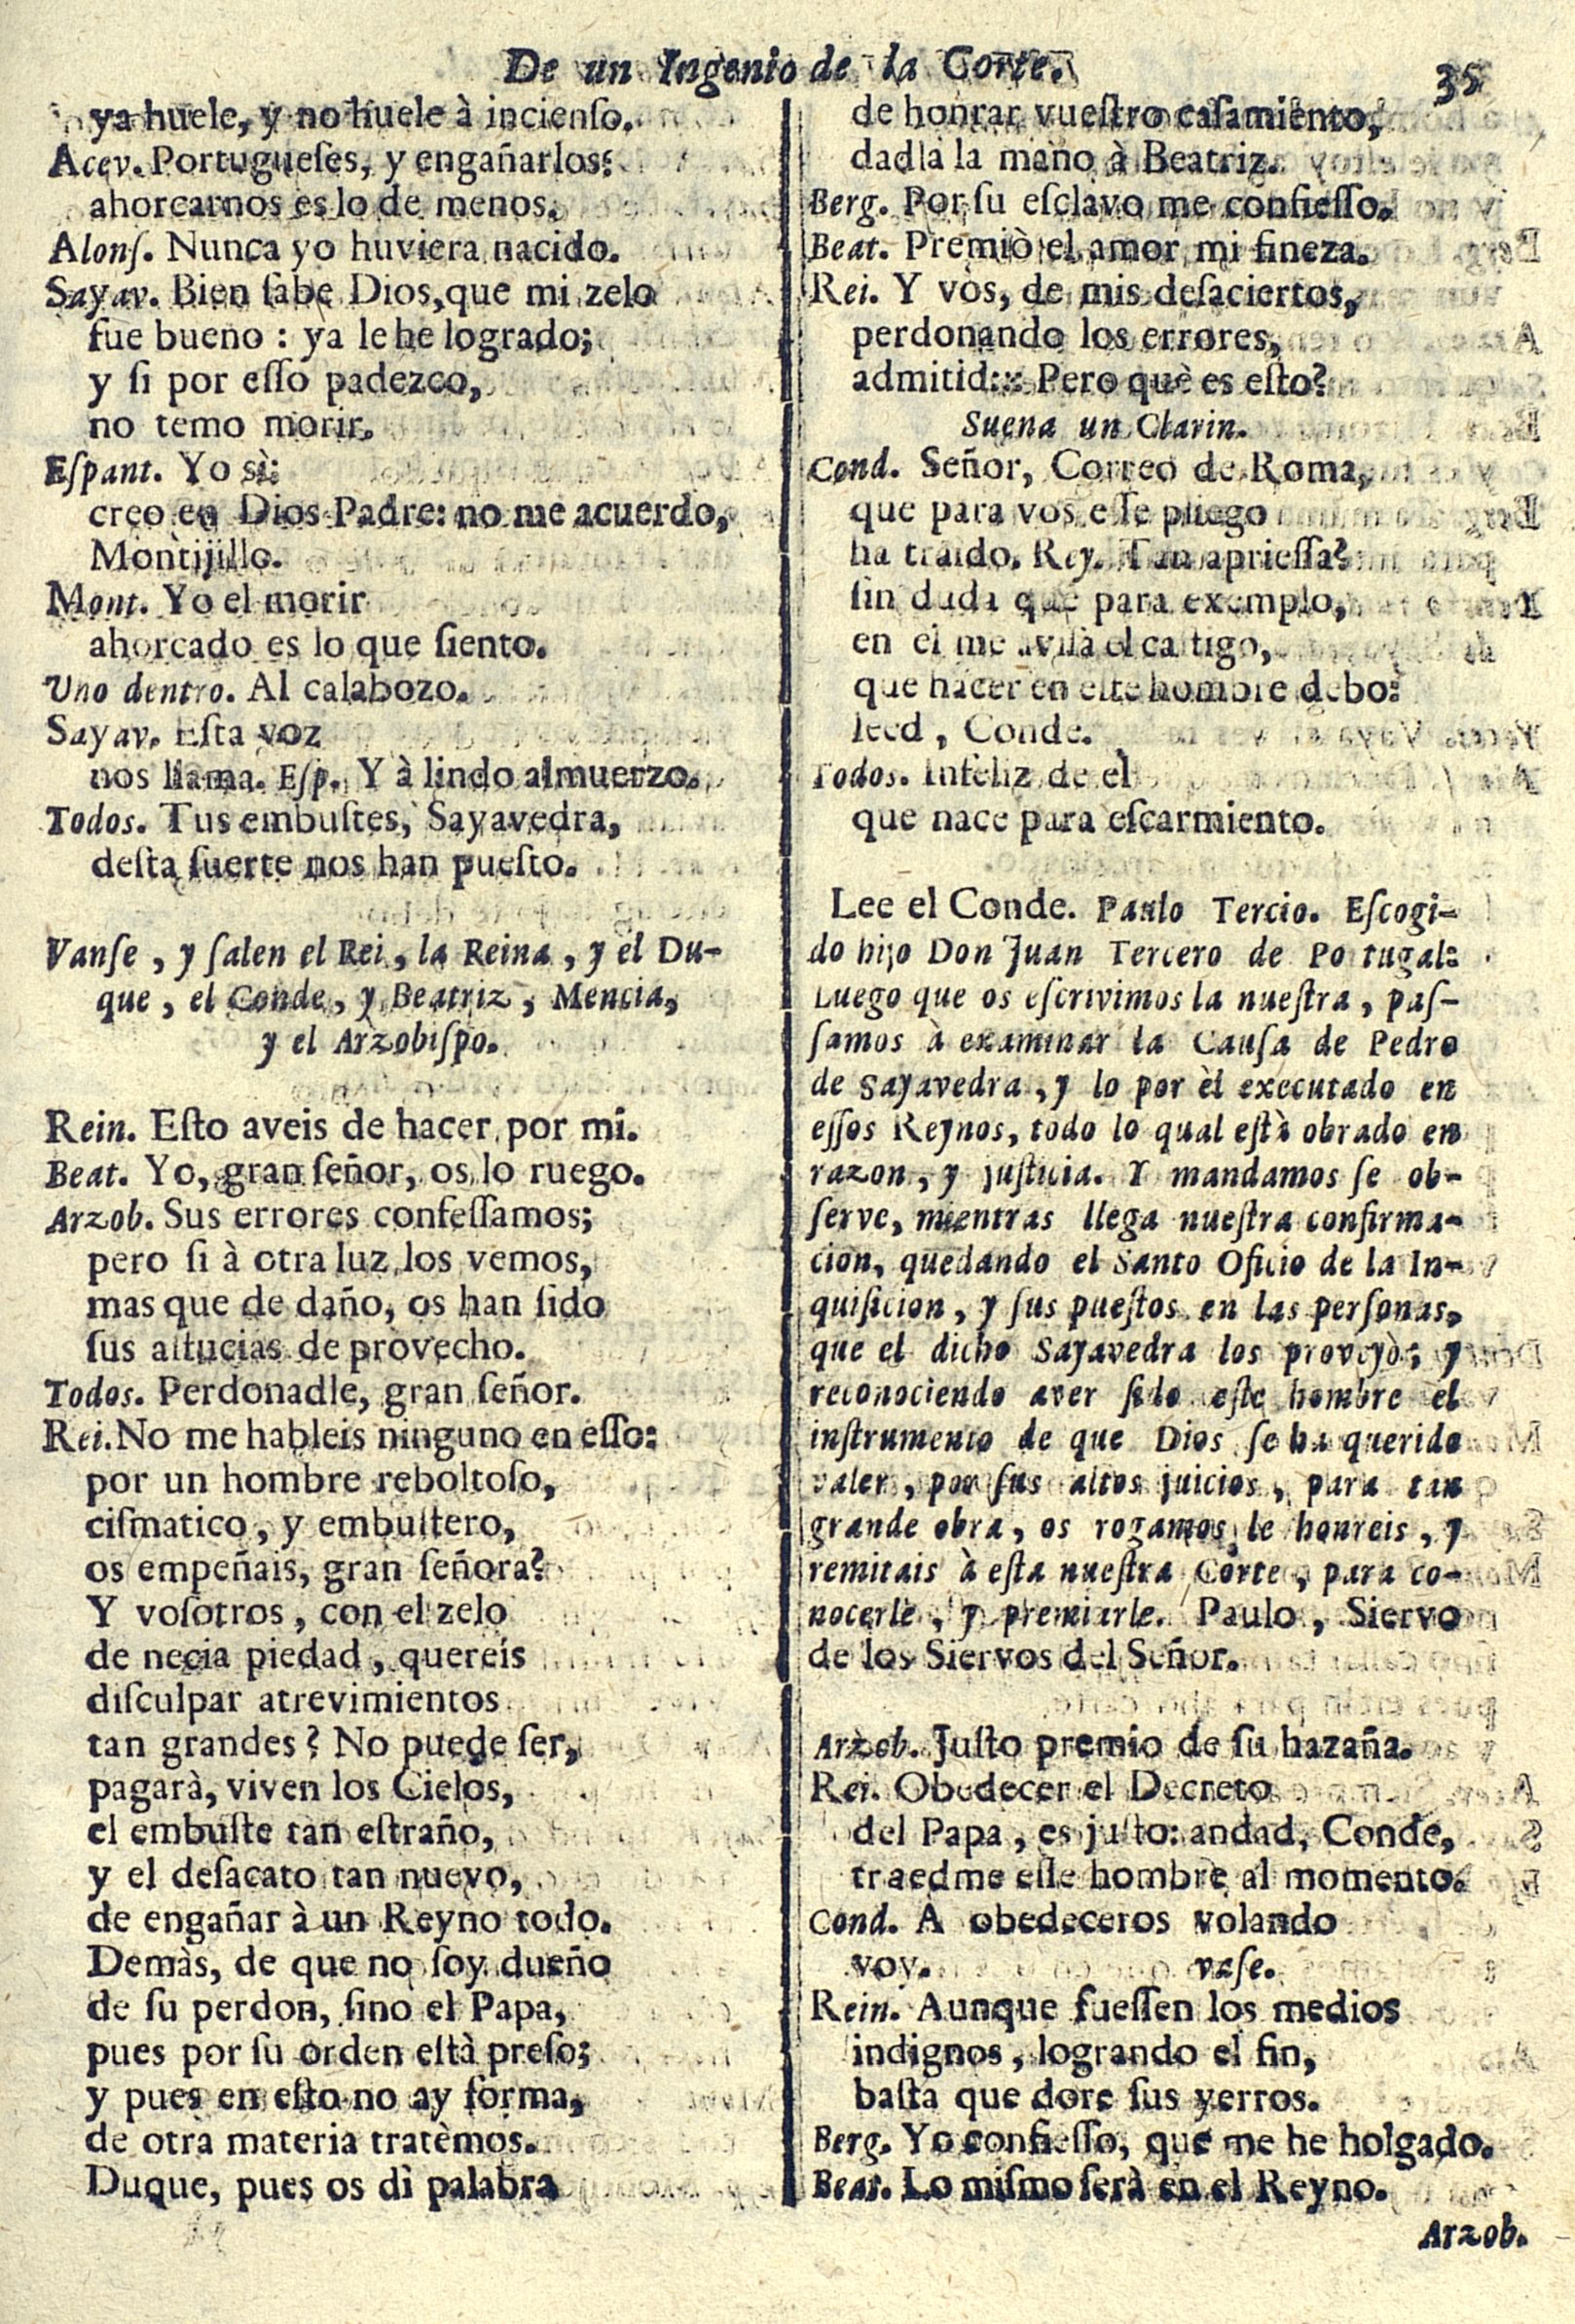 De un Ingenio de la Corte. 35
ya huele, y no huele à incienſo.
Acev. Portugueſes, y engañarlos:
ahorcarnos es lo de menos.
Alonſ. Nunca yo huviera nacido.
Sayav. Bien ſabe Dios, que mi zelo
fue bueno : ya le he logrado;
y ſi por eſſo padezco,
no temo morir.
Eſpant. Yo sì:
creo en Dios Padre: no me acuerdo,
Montijillo.
Mont. Yo el morir
ahorcado es lo que ſiento.
Uno dentro. Al calabozo.
Sayav. Eſta voz
nos llama. Eſp. Y à lindo almuerzo.
Todos. Tus embuſtes, Sayavedra,
deſta ſuerte nos han pueſto.
Vanſe , y ſalen el Rei , la Reina , y el Du-
que , el Conde , y Beatriz , Mencia,
y el Arzobiſpo.
Rein. Eſto aveis de hacer por mi.
Beat. Yo, gran ſeñor, os lo ruego.
Arzob. Sus errores confeſſamos;
pero ſi à otra luz los vemos,
mas que de daño, os han ſido
ſus aſtucias de provecho.
Todos. Perdonadle, gran ſeñor.
Rei. No me hableis ninguno en eſſo:
por un hombre reboltoſo,
ciſmatico , y embuſtero,
os empeñais, gran ſeñora?
Y voſotros , con el zelo
de necia piedad , quereis
diſculpar atrevimientos
tan grandes ? No puede ſer,
pagarà, viven los Cielos,
el embuſte tan eſtraño,
y el deſacato tan nuevo,
de engañar à un Reyno todo.
Demàs, de que no ſoy dueño
de ſu perdon, ſino el Papa,
pues por ſu orden eſtà preſo;
y pues en eſto no ay forma,
de otra materia tratèmos.
Duque, pues os dì palabra
de honrar vueſtro caſamiento,
dadla la mano à Beatriz.
Berg. Por ſu eſclavo me confieſſo.
Beat. Premiò el amor mi fineza.
Rei. Y vos, de mis deſaciertos,
perdonando los errores,
admitid:: Pero què es eſto?
Suena un Clarin.
Cond. Señor, Correo de Roma,
que para vos eſſe pliego
ha traido. Rey. Tan aprieſſa?
ſin duda que para exemplo,
en el me aviſa el caſtigo,
que hacer en eſte hombre debo:
leed , Conde.
Todos. Infeliz de el
que nace para eſcarmiento.
Lee el Conde. Paulo Tercio. Eſcogi-
do hijo Don Juan Tercero de Portugal:
Luego que os eſcrivimos la nueſtra , paſ-
ſamos à examinar la Cauſa de Pedro
de Sayavedra , y lo por èl executado en
eſſos Reynos, todo lo qual eſtà obrado en
razon , y juſticia. Y mandamos ſe ob-
ſerve, mientras llega nueſtra confirma-
cion, quedando el Santo Oficio de la In-
quiſicion , y ſus pueſtos en las perſonas,
que el dicho Sayavedra los proveyò; y
reconociendo aver ſido eſte hombre el
inſtrumento de que Dios ſe ha querido
valer , por ſus altos juicios , para tan
grande obra, os rogamos le honreis , y
remitais à eſta nueſtra Corte , para co-
nocerle , y premiarle. Paulo , Siervo
de los Siervos del Señor.
Arzob. Juſto premio de ſu hazaña.
Rei. Obedecer el Decreto
del Papa , es juſto: andad, Conde,
traedme eſſe hombre al momento.
Cond. A obedeceros volando
voy. vaſe.
Rein. Aunque fueſſen los medios
indignos , logrando el fin,
baſta que dore ſus yerros.
Berg. Yo confieſſo, que me he holgado.
Beat. Lo miſmo ſerà en el Reyno.
Arzob.